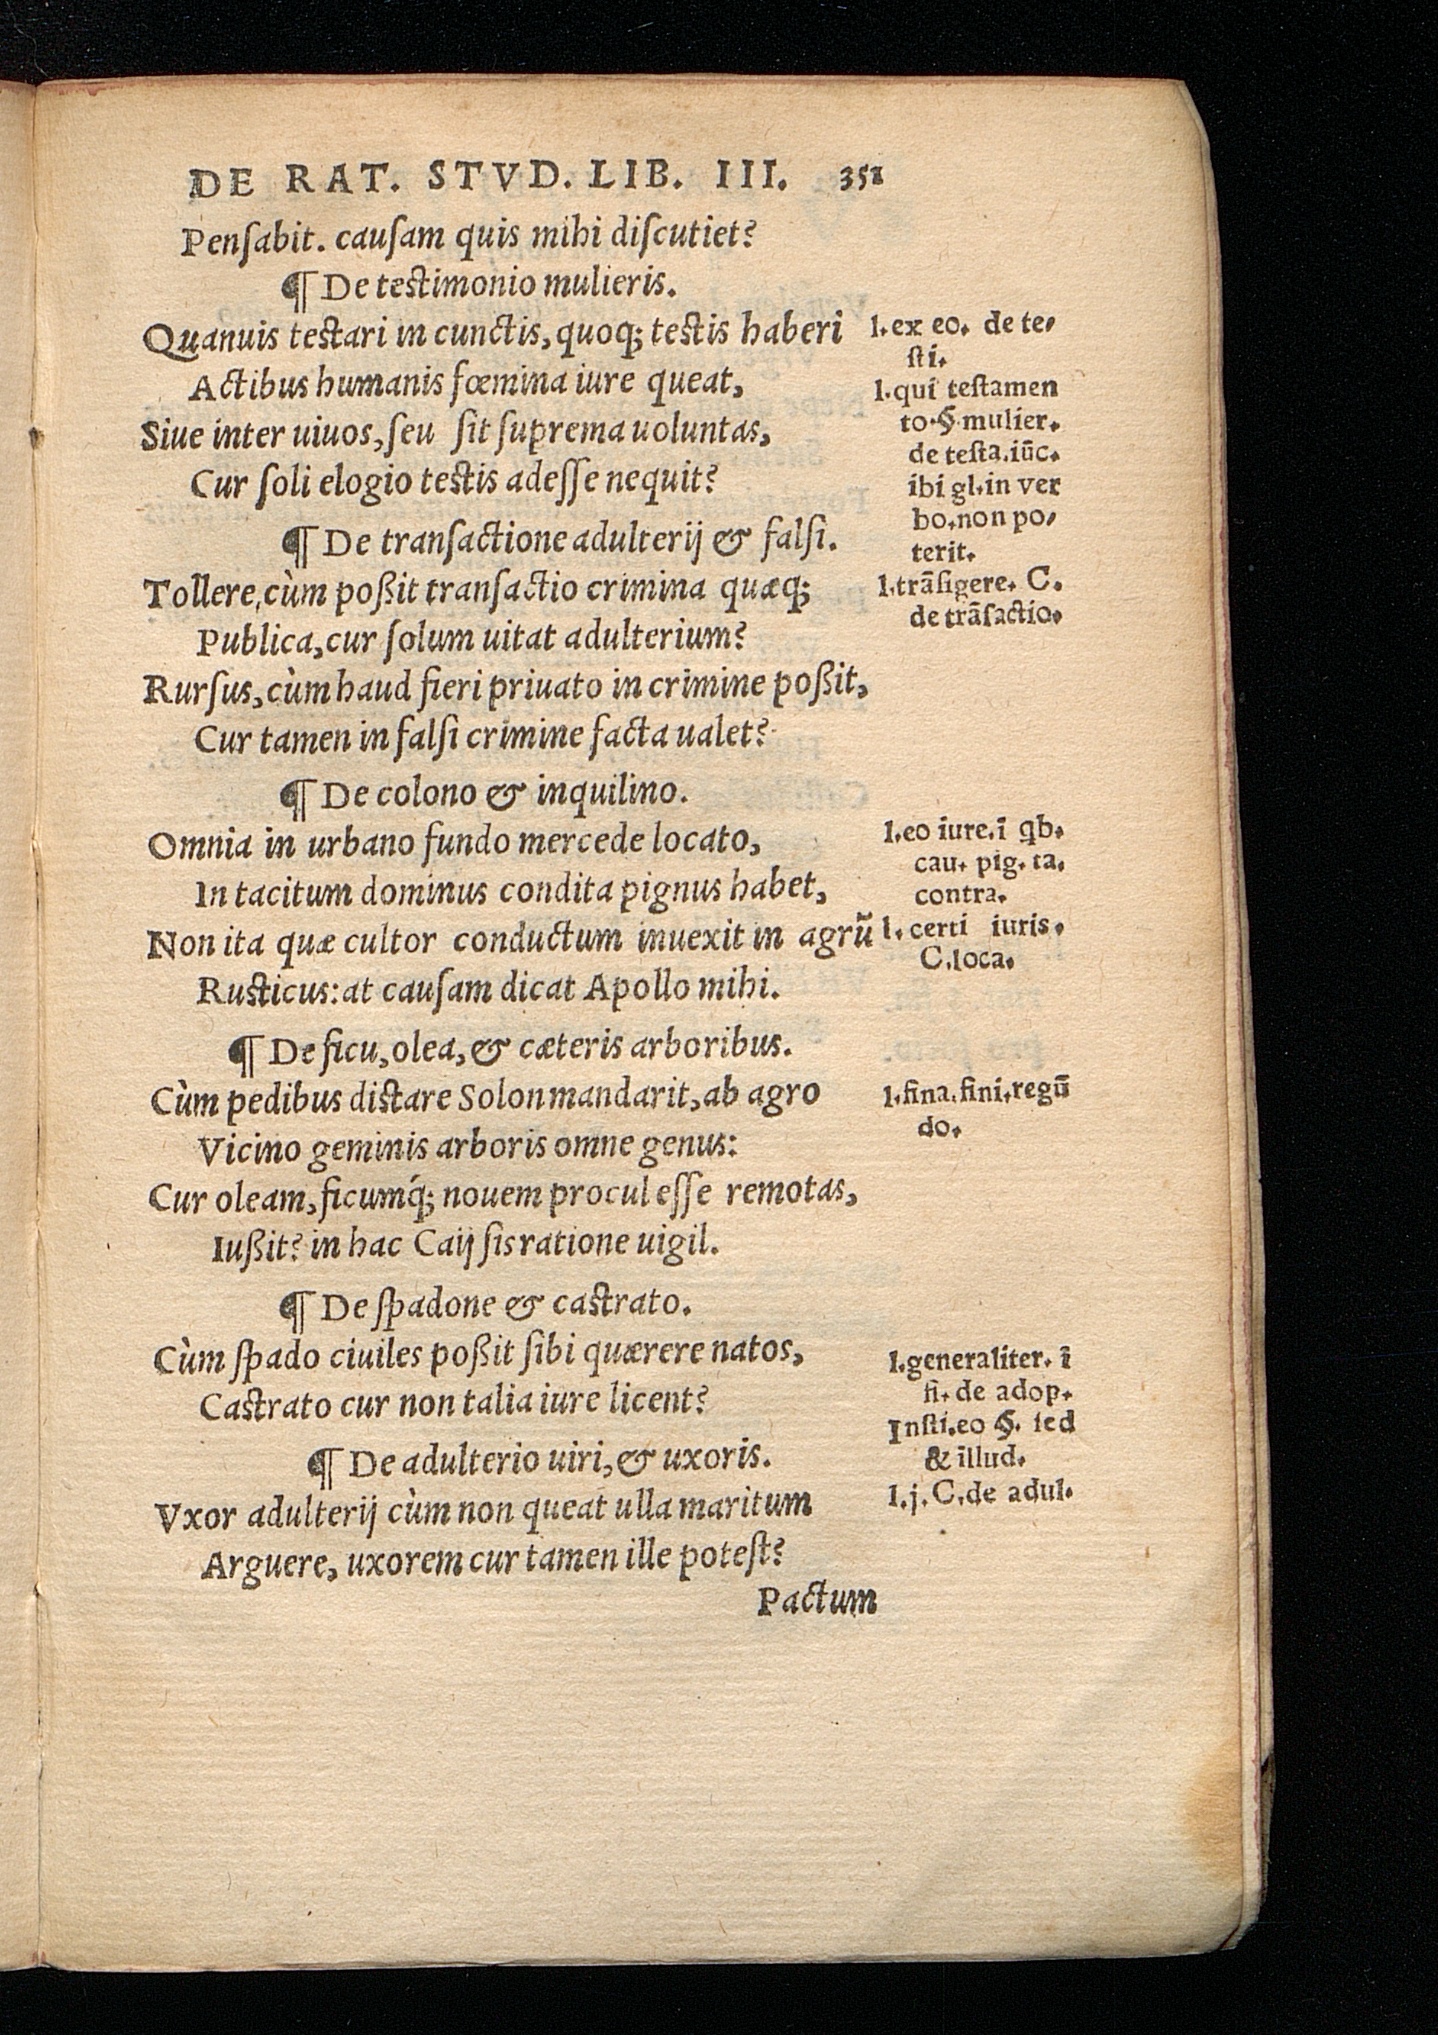 DE RAT. STVD. LIB. III. 351
Penſabit. cauſam quis mihi diſcutiet?
¶ De testimonio mulieris.
Quanuis testari in cunctis, quoq; testis haberi
Actibus humanis fœmina iure queat,
Siue inter uiuos, ſeu ſit ſuprema uoluntas,
Cur ſoli elogio testis adeſſe nequit?
¶ De tranſactione adulterij & falſi.
Tollere, cùm poßit tranſactio crimina quæq;
Publica, cur ſolum uitat adulterium?
Rurſus, cùm haud fieri priuato in crimine poßit,
Cur tamen in falſi crimine facta ualet?
¶ De colono & inquilino.
Omnia in urbano fundo mercede locato,
In tacitum dominus condita pignus habet,
Non ita quæ cultor conductum inuexit in agrũ
Rusticus: at cauſam dicat Apollo mihi.
¶ De ficu, olea, & cæteris arboribus.
Cùm pedibus distare Solon mandarit, ab agro
Vicino geminis arboris omne genus:
Cur oleam, ficumq́; nouem procul eſſe remotas,
Iußit? in hac Caij ſis ratione uigil.
¶ De ſpadone & castrato.
Cùm ſpado ciuiles poßit ſibi quærere natos,
Castrato cur non talia iure licent?
¶ De adulterio uiri, & uxoris.
Vxor adulterij cùm non queat ulla maritum
Arguere, uxorem cur tamen ille poteſt?
Pactum
l. ex eo. de te-
ſti.
l. qui teſtamen
to. §. mulier.
de teſta. iũc.
ibi gl. in ver
bo. non po-
terit.
l. trãſigere. C.
de trãſactio.
l. eo iure. ĩ qb.
cau. pig. ta.
contra.
l. certi iuris.
C. loca.
l. fina. fini. regũ
do.
l. generaliter. ĩ
fi. de adop.
Inſti. eo §. ſed
& illud.
l. j. C. de adul.